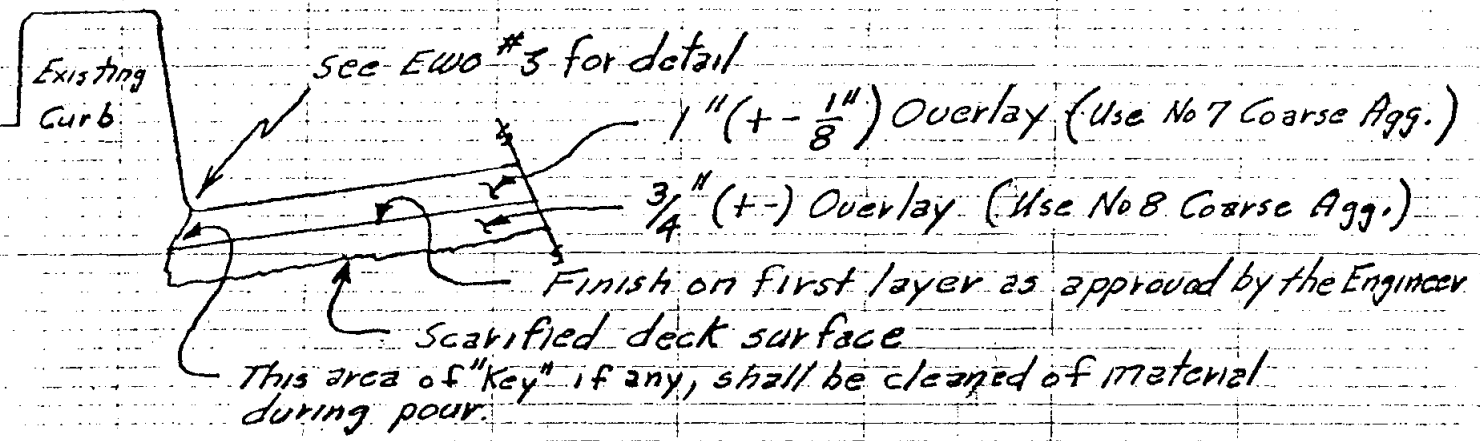 Existing
Curb
see EWO #3 for detail
1" (+ - 1/8") Overlay (Use No 7 Coarse Agg.)
3/4" (+-) Overlay (Use No 8 Coarse Agg.)
Finish on first layer as approved by the Engineer
Scarified deck surface
This area of "Key" if any, shall be cleaned of material
during pour.